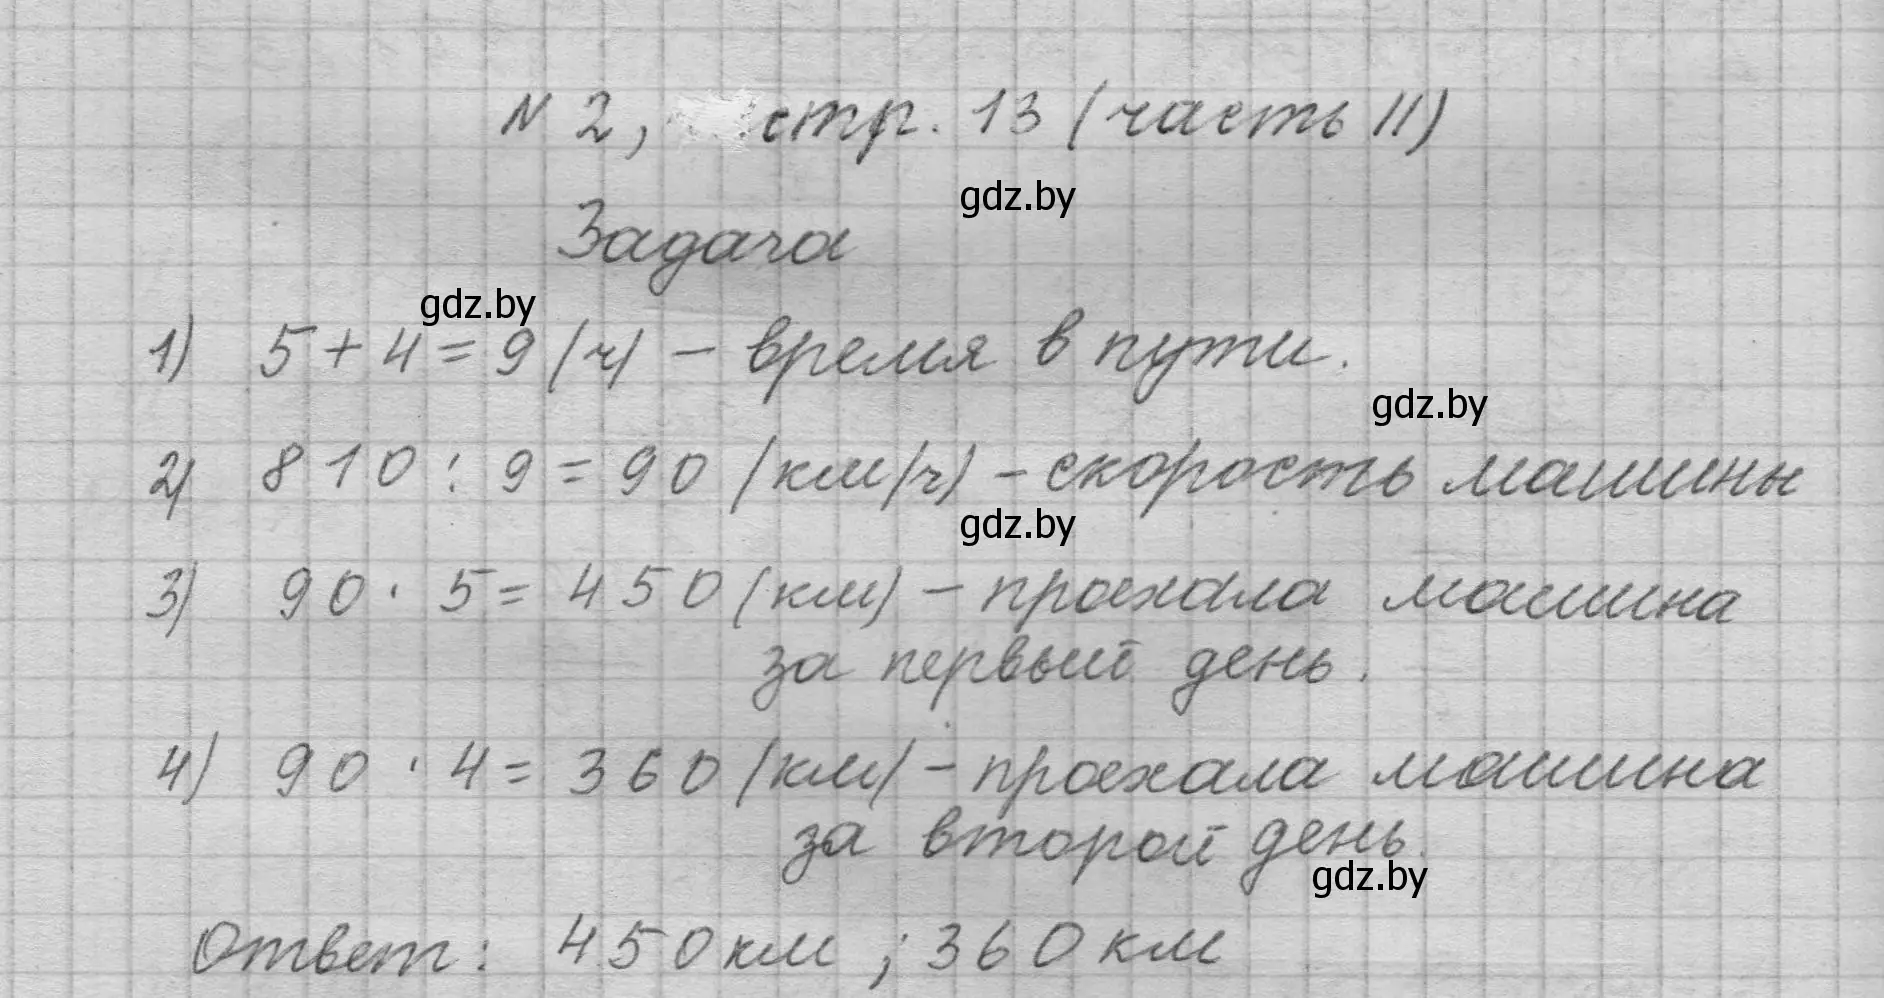 N 2, стр. 13 (часть II)
gdz.by
Задача
gdz.by
1) 5+4=9 (ч) – время в пути.
gdz.by
2) 810 : 9 = 90 (км/ч) – скорость машины
gdz.by
3) 90 · 5 = 450 (км) – проехала машина
за первый день.
4) 90 · 4 = 360 (км) – проехала машина
за второй день.
gdz.by
Ответ: 450 км ; 360 км